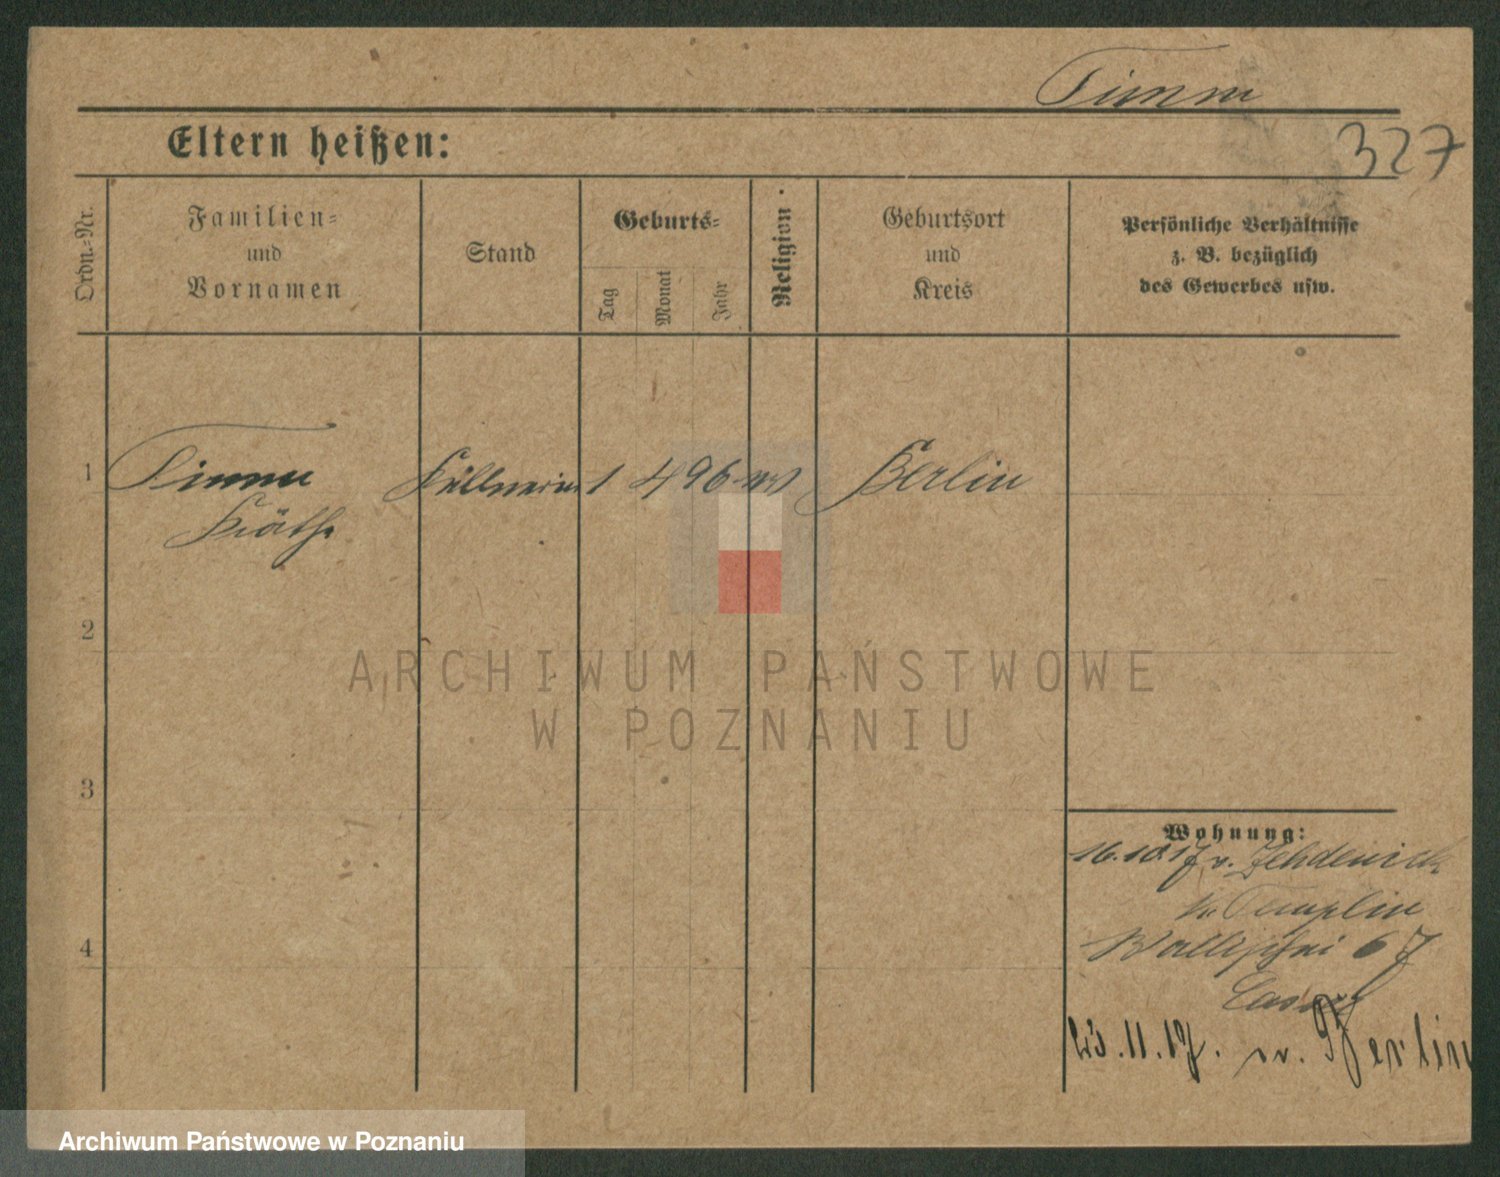 Timm
327
Eltern heißen:
Ordn.=Nr.
Familien=
und
Vornamen
Stand
Geburts=
Tag
Monat
Jahr
Religion
Geburtsort
und
Kreis
Persönliche Verhältnisse
z. B. bezüglich
des Gewerbes usw.
1 Timm Kellnerin 1 4 96 Berlin
Käthe
2
3
4
Wohnung:
16.10.17 v. Zehdenick
Kr. Templin
Wallischei 67
23.11.17. n. Berlin
ARCHIWUM PAŃSTWOWE
W POZNANIU
Archiwum Państwowe w Poznaniu